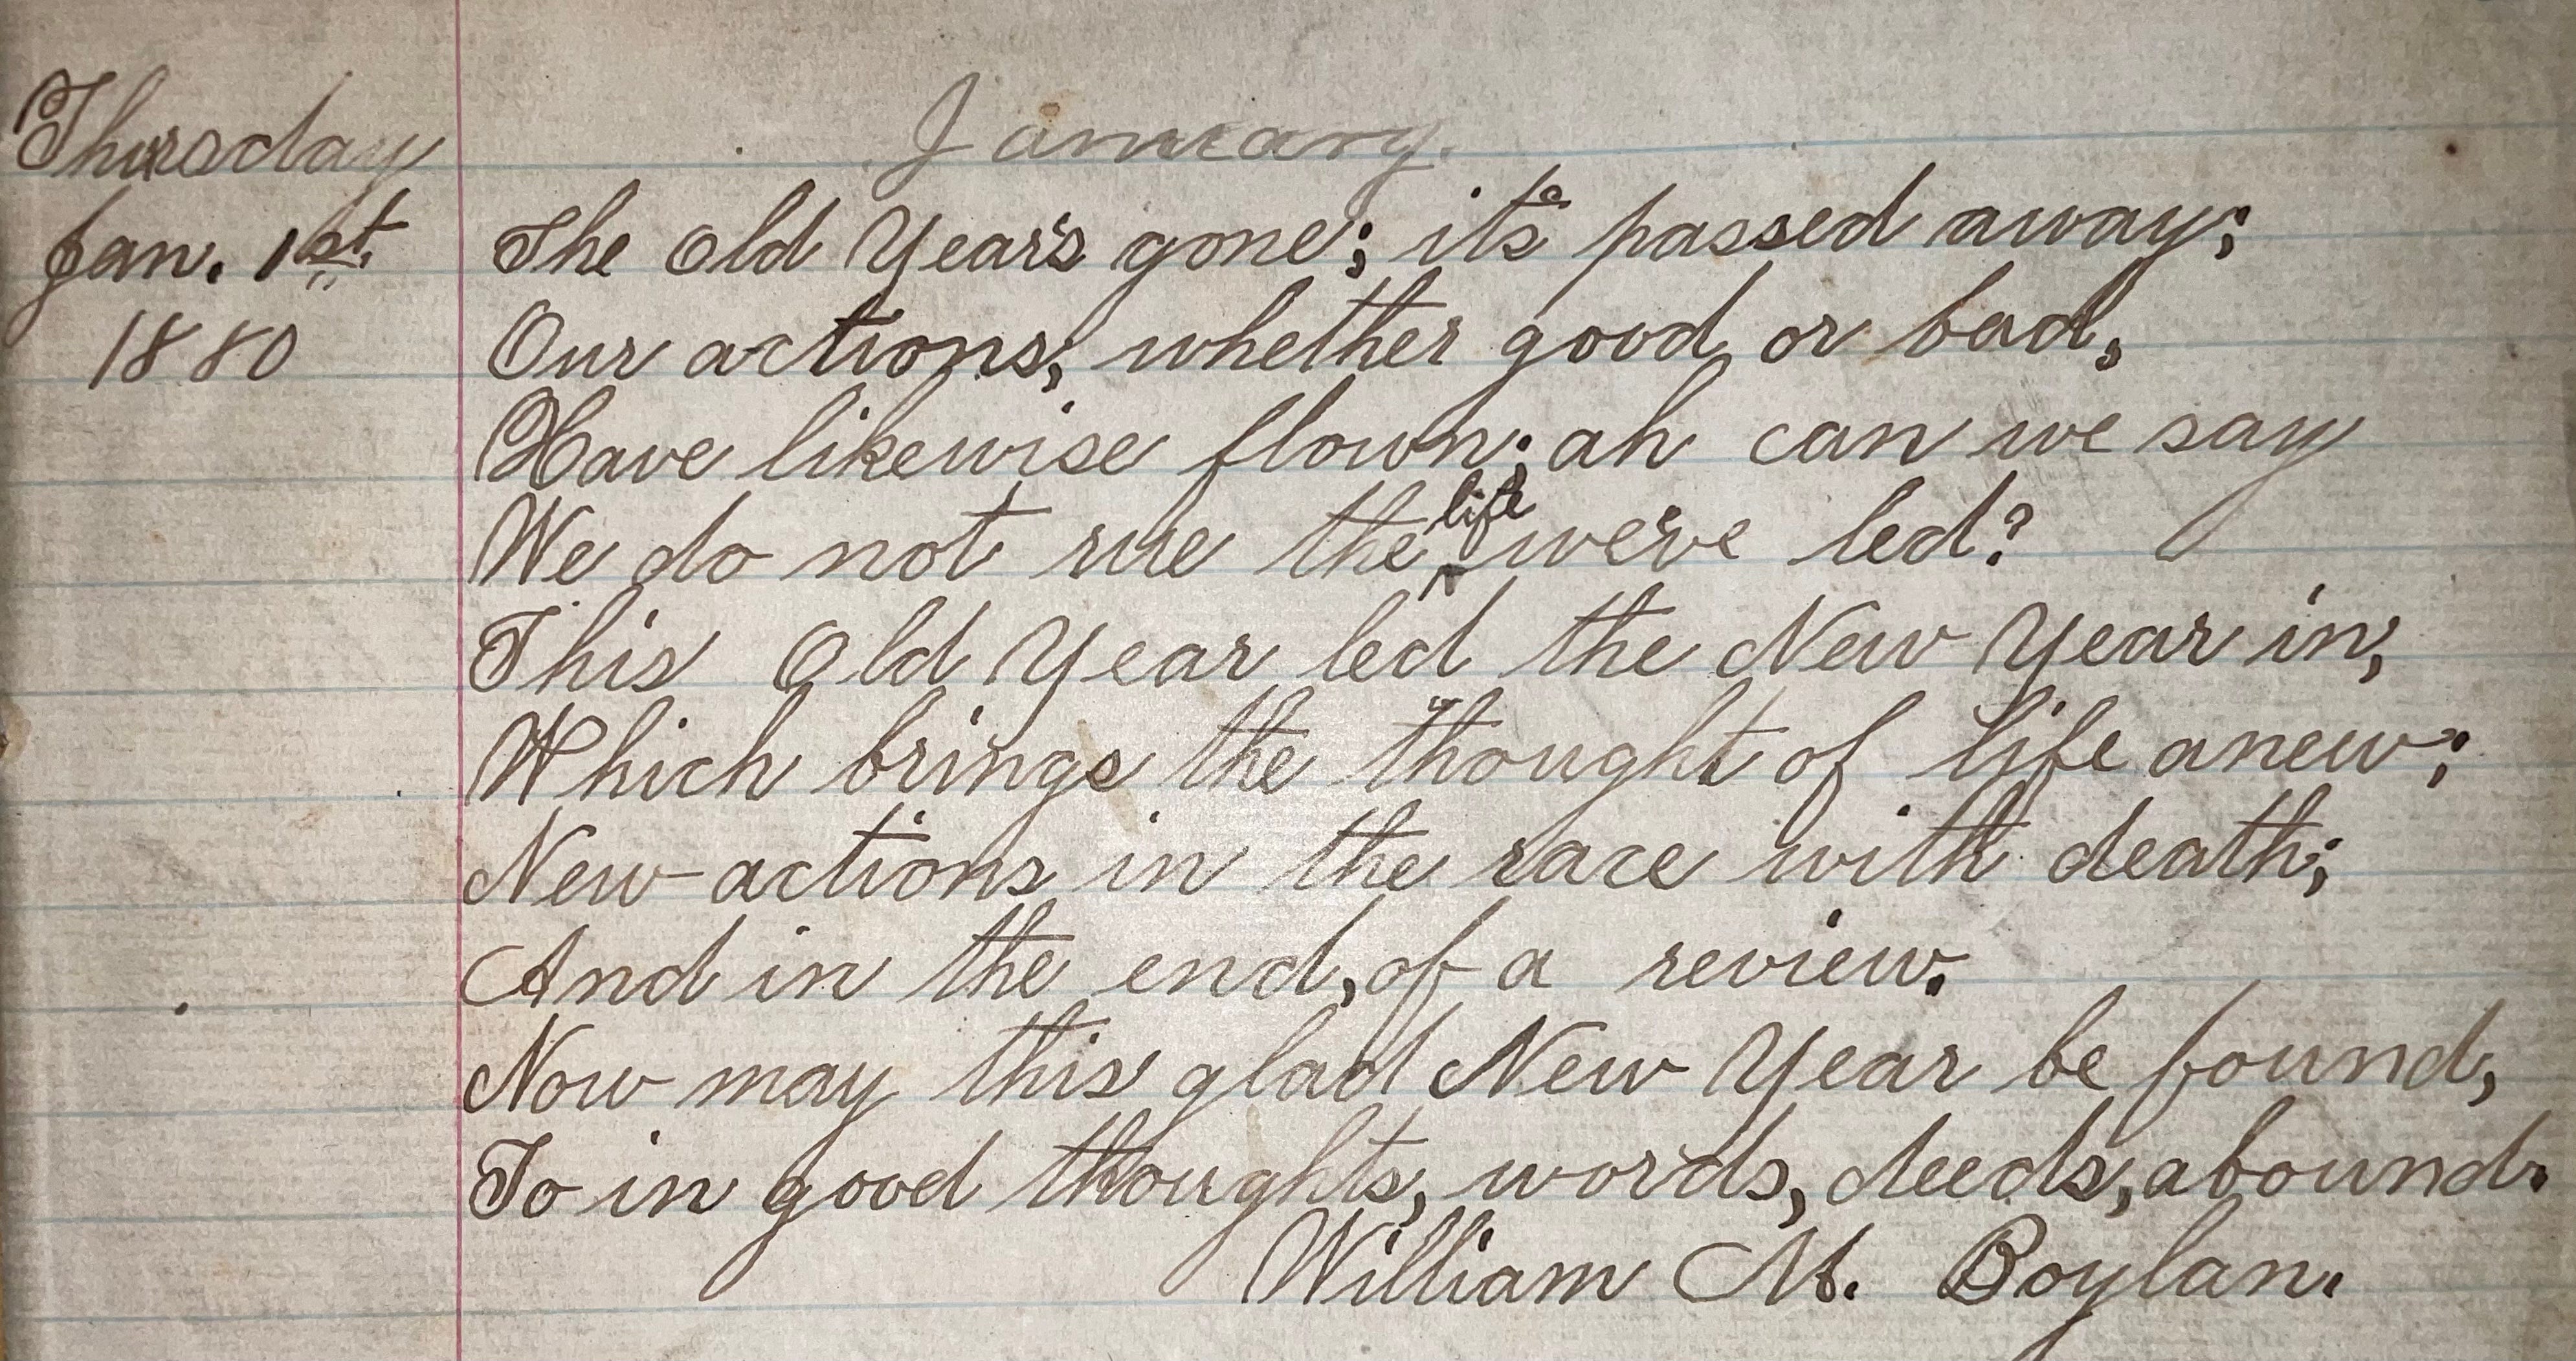 January.
Thursday
Jan. 1st.
1880
The Old Year's gone; it's passed away;
Our actions, whether good or bad,
Have likewise flown; ah can we say
We do not rue the life we've led?
This Old Year led the New Year in,
Which brings the thought of life anew;
New actions in the race with death;
And in the end, of a review.
Now may this glad New Year be found,
To in good thoughts, words, deeds, abound.
William M. Boylan.